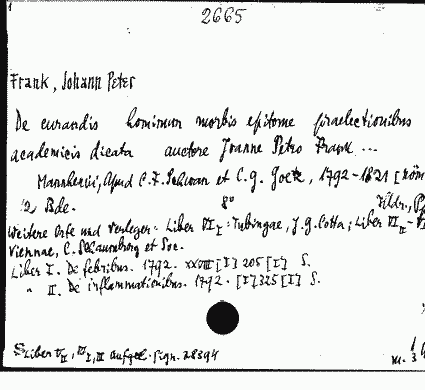 2665
Frank, Johann Peter
De curandis hominum morbis epitome praelectionibus
academicis dicata auctore Joanne Petro Frank ...
Mannhemii, Apud C.F. Schwan et C.G. Goetz, 1792-1821 [röm
2 Bde. 8°
Weitere Orte und Verleger: Liber VI I: Tubingae, J.G. Cotta; Liber VI II-
Viennae, C. Schaumburg et Soc.
Liber I. De febribus. 1792. XXVIII [I] 205 [I] S.
" II. De inflammationibus. 1792. [I] 325 [I] S.
Liber V II, VI I, II, III aufgest. Sign. 28394